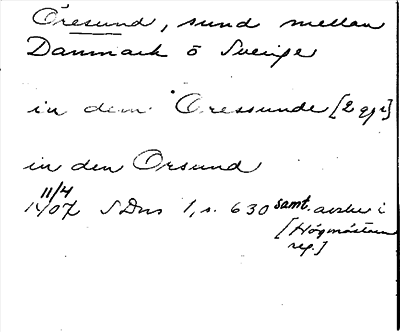 Öresund, sund mellan
Danmark o Sverige
in dem Oressunde [2 ggr]
in den Orsund
11/4
1407 SDns 1, s. 630 samt. avskr i
[Högmästarn
reg.]